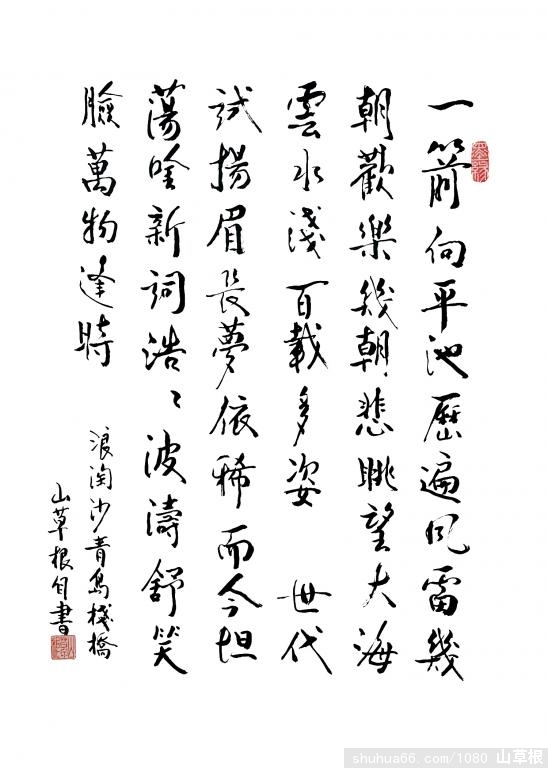 一箭向平池歷遍风雷幾
朝歡樂幾朝悲眺望大海
雲水淺百載多姿 世代
試揚眉長夢依稀而今坦
蕩唫新詞浩〻波濤舒笑
臉萬物逢時
浪淘沙青島棧橋
山草根自書
shuhua66.com/1080 山草根